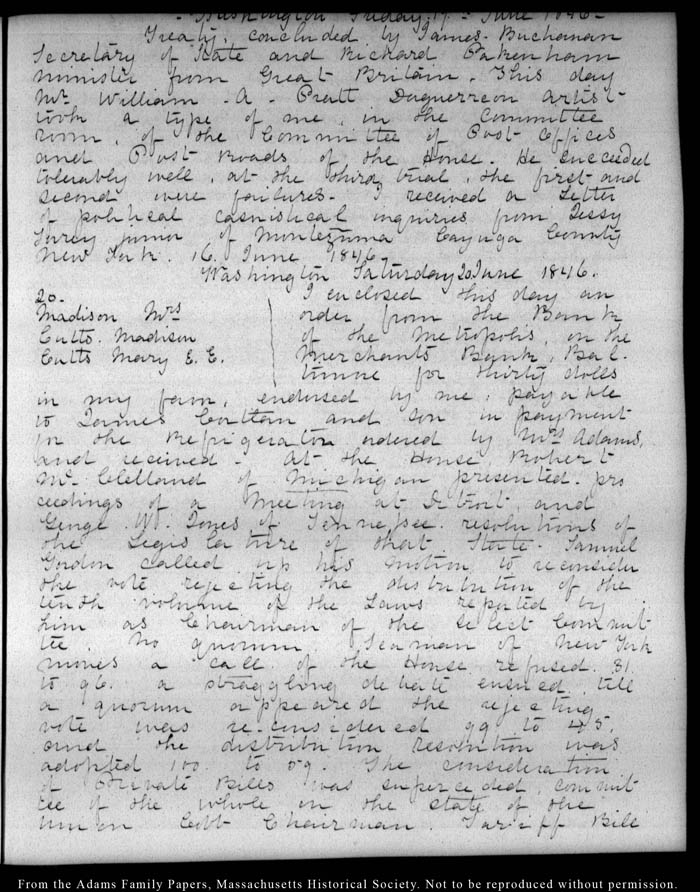 Washington Friday 19 June 1846-
Treaty, concluded by James. Buchanan
Secretary of State and Richard Pakenham
minister from Great Britain. This day
Mr. William. A. Pratt Daguerreon Artist
took a type of me, in the Committee
room, of the Committee of Post Offices
and Post Roads of the House. He succeeded
tolerably well, at the third trial, the first and
second were failures. I received a Letter
of political casuistical inquiries from Jessy
Torrey junior of Montezuma Cayuga County
New York. 16. June 1846.
Washington Saturday 20 June 1846.
20.
Madison Mrs
Cutts. Madison
Cutts Mary E. E.
I enclosed this day an
order from the Bank
of the Metropolis, on the
Merchants Bank, Bal.
timore for thirty dolls
in my favor, endorsed by me, payable
to James Cortlan and son in payment
for the Refrigerator ordered by Mrs Adams,
and received. At the House Robert
Mc Clelland of Michigan presented pro
ceedings of a Meeting at Detroit, and
George W. Jones of Tennessee resolutions of
the Legislature of that State. Samuel
Gordon called up his motion to reconsider
the vote rejecting the distribution of the
tenth volume of the Laws reported by
him as Chairman of the select Commit
tee. No quorum. Seaman of New York
moves a call of the House refused. 31.
to 96. a straggling debate ensued till
a quorum appeared the rejecting
vote was re-considered 99 to 45.
and the distribution resolution was
adopted 100. to 59. The consideration
of Private Bills was superceded, commit
tee of the whole on the state of the
union Cobb Chairman. Tariff Bill
From the Adams Family Papers, Massachusetts Historical Society. Not to be reproduced without permission.